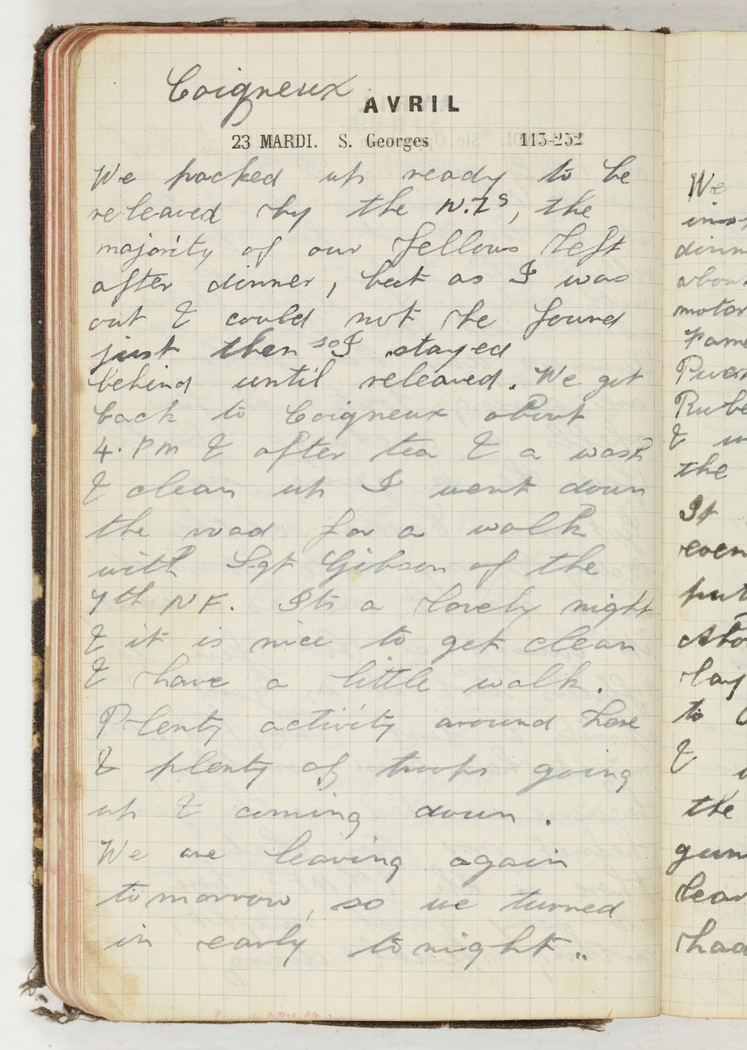 Coigneux
AVRIL
23 MARDI. S. Georges 113-252
We packed up ready to be
releaved by the N.Zs, the
majority of our fellows left
after dinner, but as I was
out & could not be found
just then so I stayed
behind until releaved. We got
back to Coigneux about
4. Pm & after tea & a wash
& clean up I went down
the road for a walk
with Sgt Gibson of the
7th N F. Its a lovely night
& it is nice to get clean
& have a little walk.
Plenty activity around here
& plenty of troops going
up & coming down.
We are leaving again
tomorrow, so we turned
in early tonight..
We
dinn
abou
motor
Fame
Rube
&
the
It
even
put
Abo
lay
to
&
the
gun
lear
had